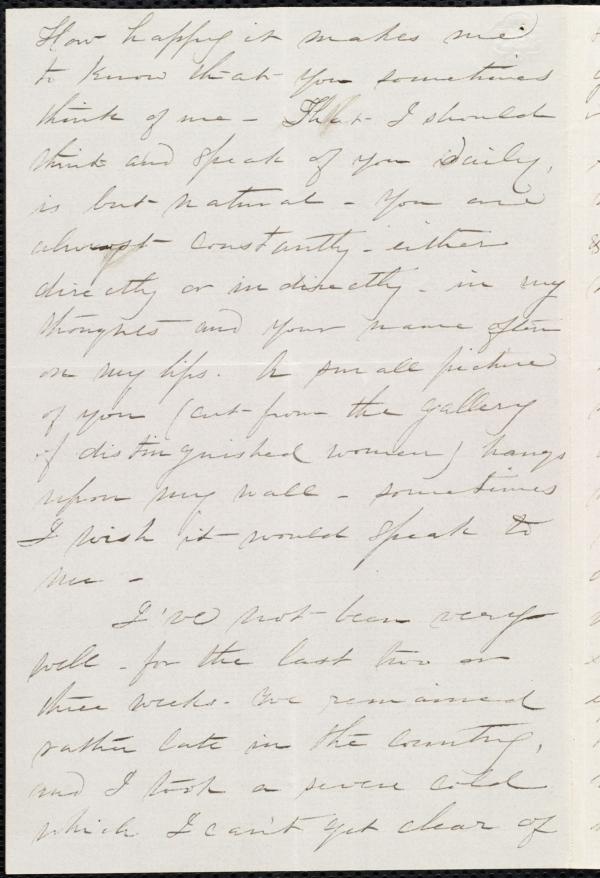 How happy it makes me
to know that you sometimes
think of me - That I should
think and speak of you daily,
is but natural - You are
almost constantly - either
directly or indirectly - in my
thoughts and your name often
on my lips. A small picture
of you (cut from the gallery
of distinguished women) hangs
upon my wall - sometimes
I wish it would speak to
me -
I've not been very
well - for the last two or
three weeks. We remained
rather late in the country,
and I took a severe cold
which I can't get clear of